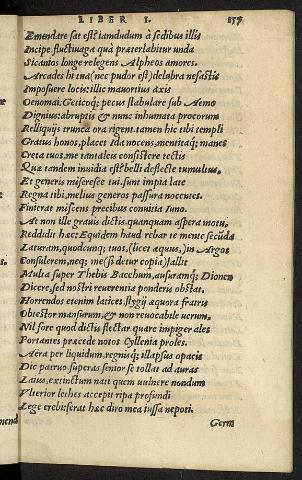 LIBER I. 157
Emendare sat est: iamdudum à sedibus illis
Incipe fluctiuaga quà præterlabitur unda
Sicanios longe relegens Alpheos amores.
Arcades hi tua (nec pudor est) delubra nefastis
Imposuere locis: illic mauortius axis
Oenomai: Geticoq; pecus stabulare sub Aemo
Dignius: abruptis & nunc inhumata procorum
Relliquijs trunca ora rigent. tamen hic tibi templi
Gratus honos, placet Ida nocens, mentitaq; manes
Creta tuos, me tantaleis consistere tectis
Quæ tandem inuidia est: belli deflecte tumultus.
Et generis miseresce tui. sunt impia late
Regna tibi, melius generos passura nocentes.
Finierat miscens precibus conuitia Iuno.
At non ille grauis dictis, quanquam aspera motu,
Reddidit hæc: Equidem haud rebar te mente secūda
Laturam, quodcunq; tuos, (licet æquus,) in Argos
Consulerem, neq; me (si detur copia) fallit
Multa super Thebis Bacchum, ausuramq; Dionen
Dicere, sed nostri reuerentia ponderis obstat.
Horrendos etenim latices, stygij æquora fratris
Obtestor mansurum, & non reuocabile uerum.
Nil fore quod dictis flectar. quare impiger ales
Portantes præcede notos Cyllenia proles.
Aera per liquidum, regnisq; illapsus opacis
Dic patruo, superas senior se tollat ad auras
Laius, extinctum nati quem uulnere nondum
Vlterior lethes accepit ripa profundi
Lege erebi: ferat hæc diro mea iussa nepoti.
Germ